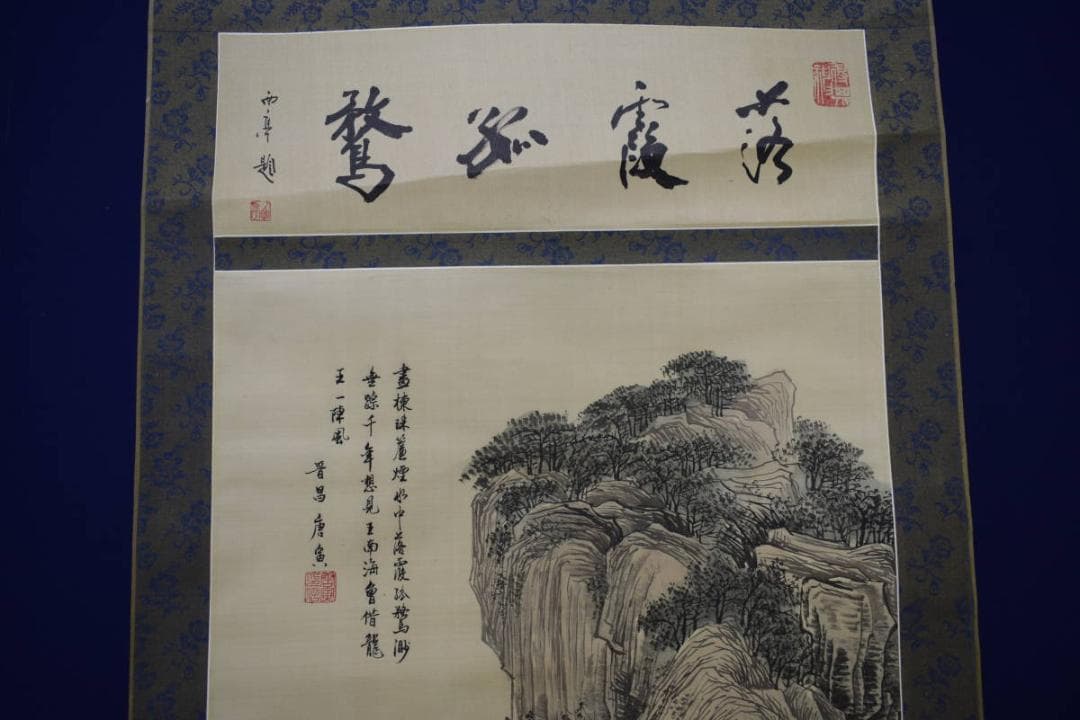 落霞孤鶩
題
畫棟珠簾煙水中落霞孤鶩渺
無踪千年想見王南海曾借龍
王一陣風
晉昌唐寅